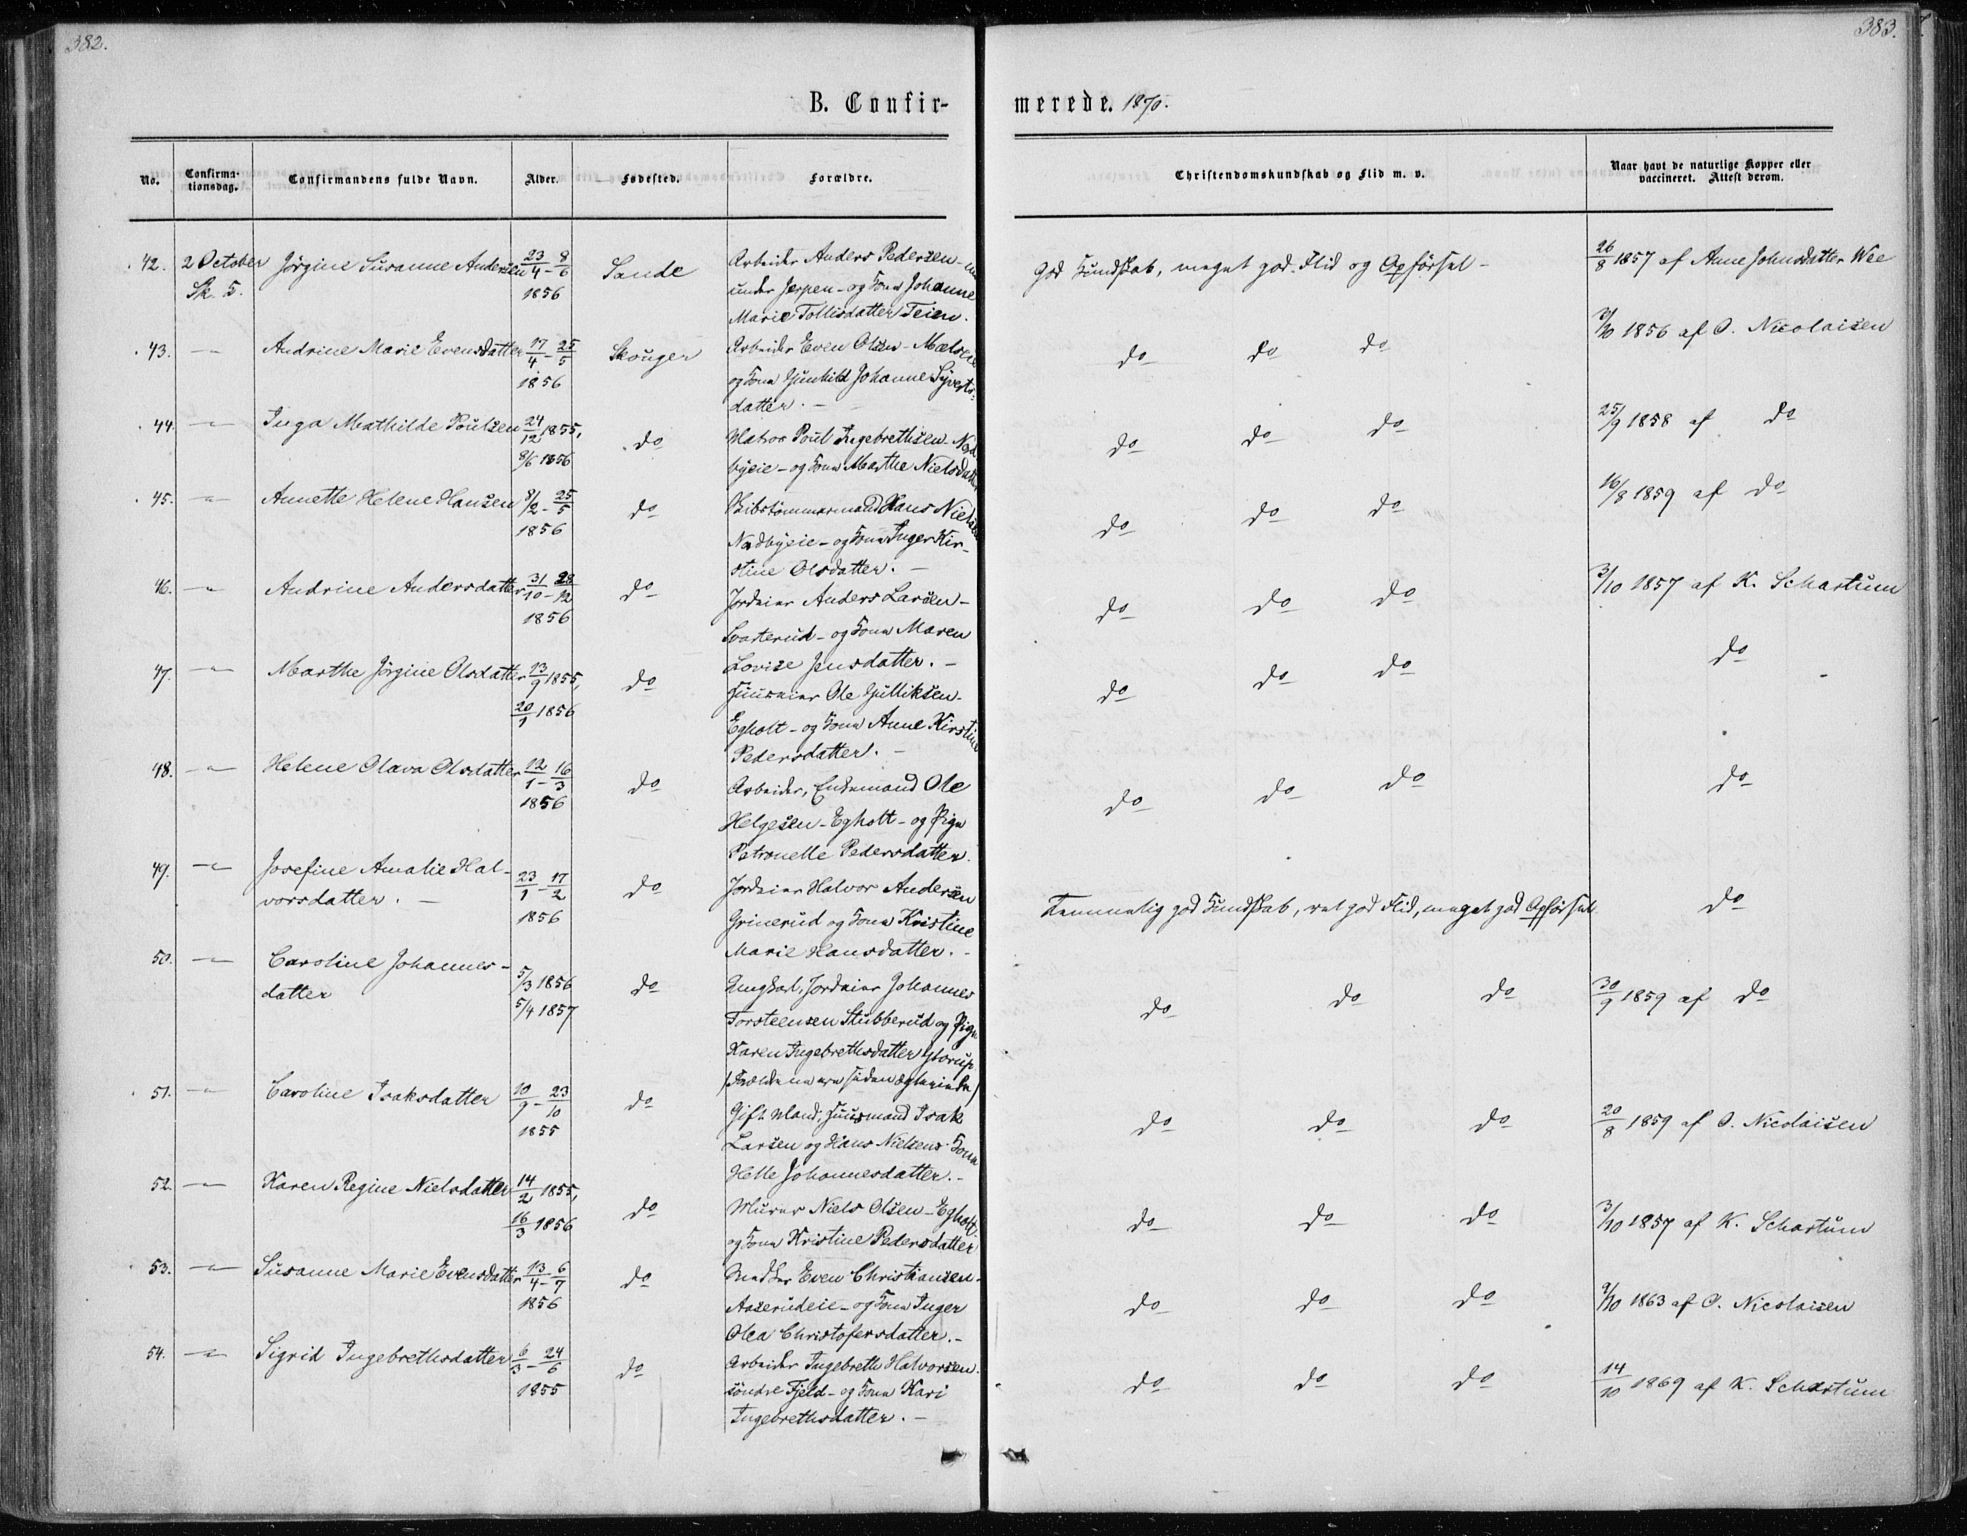 382.
383.
B. Confir-
merede. 1870.
No.
Confirma-
tionsdag.
Confirmandens fulde Navn.
Alder.
Fødested.
Forældre.
Christendomskundskab og Flid m. v.
Naar havt de naturlige Kopper eller
vaccineret. Attest derom.
42. 2 October Jørgine Susanne Andersen 23/4 - 8/6 Sande Arbeider Anders Pedersen
Sk. 5. 1856 under Jerpen - og Kone Johanne
Marie Tollisdatter Teien.
God Kundskab, meget god Flid og Opførsel - 26/8 1857 af Anne Johnsdatter Wee
43. -"- Andrine Marie Evensdatter 17/4 - 25/5 Skouger Arbeider Even Olsen
1856 og Kone Gunhild Johanne Syverts-
datter. -
do do do /10 1856 af O. Nicolaisen
44. -"- Inga Mathilde Poulsen 24/12 1855, do Matros Poul Ingebrethsen
8/6 1856 byeie - og Kone Marthe Nielsdatter
do do do 25/9 1858 af do
45. -"- Annette Helene Hansen 8/2 - 25/5 do Skibstømmermand Hans Nielsen
1856 Nodbyeie - og Kone Inger Kir-
stine Olsdatter. -
do do do 16/8 1859 af do
46. -"- Andrine Andersdatter 31/10 - 28/12 do Jordeier Anders Larsen -
1856 Svarterud - og Kone Maren
Lovise Jensdatter. -
do do do 3/10 1857 af K. Schartum
47. -"- Marthe Jørgine Olsdatter 13/9 1855, do Huuseier Ole Gulliksen -
20/1 1856 Egholt - og Kone Anne Kirstine
Pedersdatter. -
do do do do
48. -"- Helene Olava Olsdatter 12/1 - 16/3 do Arbeider, Enkemand Ole
1856 Helgesen - Egholt - og Pige
Petronelle Pedersdatter.
do do do do
49. -"- Josefine Amalie Hal-
vorsdatter. - 23/1 - 17/2 do Jordeier Halvor Andersen
1856 Grinerud og Kone Kristine
Marie Hansdatter. -
Temmelig god Kundskab, ret god Flid, meget god Opførsel. do
50. -"- Caroline Johannes-
datter 5/3 1856 do Ungkarl, Jordeier Johannes
5/4 1857 Torsteensen Stubberud og Pige
Karen Ingebrethsdatter
do do do 30/9 1859 af do
51. -"- Caroline Isaksdatter 10/9 - 23/10 do Gift Mand, Huusmand Isak
1855 Larsen og Hans Nielsens Kone
Helle Johannesdatter. -
do do do 20/8 1859 af O. Nicolaisen
52. -"- Karen Regine Nielsdatter 14/2 1855, do Murer Niels Olsen - Egholt
16/3 1856 og Kone Kristine Pedersdatter
do do do 3/10 1857 af K. Schartum
53. -"- Susanne Marie Evensdatter 13/4 - 6/7 do Snedker Even Christiansen -
1856 Aaserudeie - og Kone Inger
Olea Christofersdatter. -
do do do 9/10 1863 af O. Nicolaisen
54. -"- Sigrid Ingebrethsdatter 6/3 - 24/6 do Arbeider Ingebreth Halvorsen
1855 söndre Fjeld - og Kone Kari
Ingebrethsdatter. -
do do do 14/10 1869 af K. Schartum